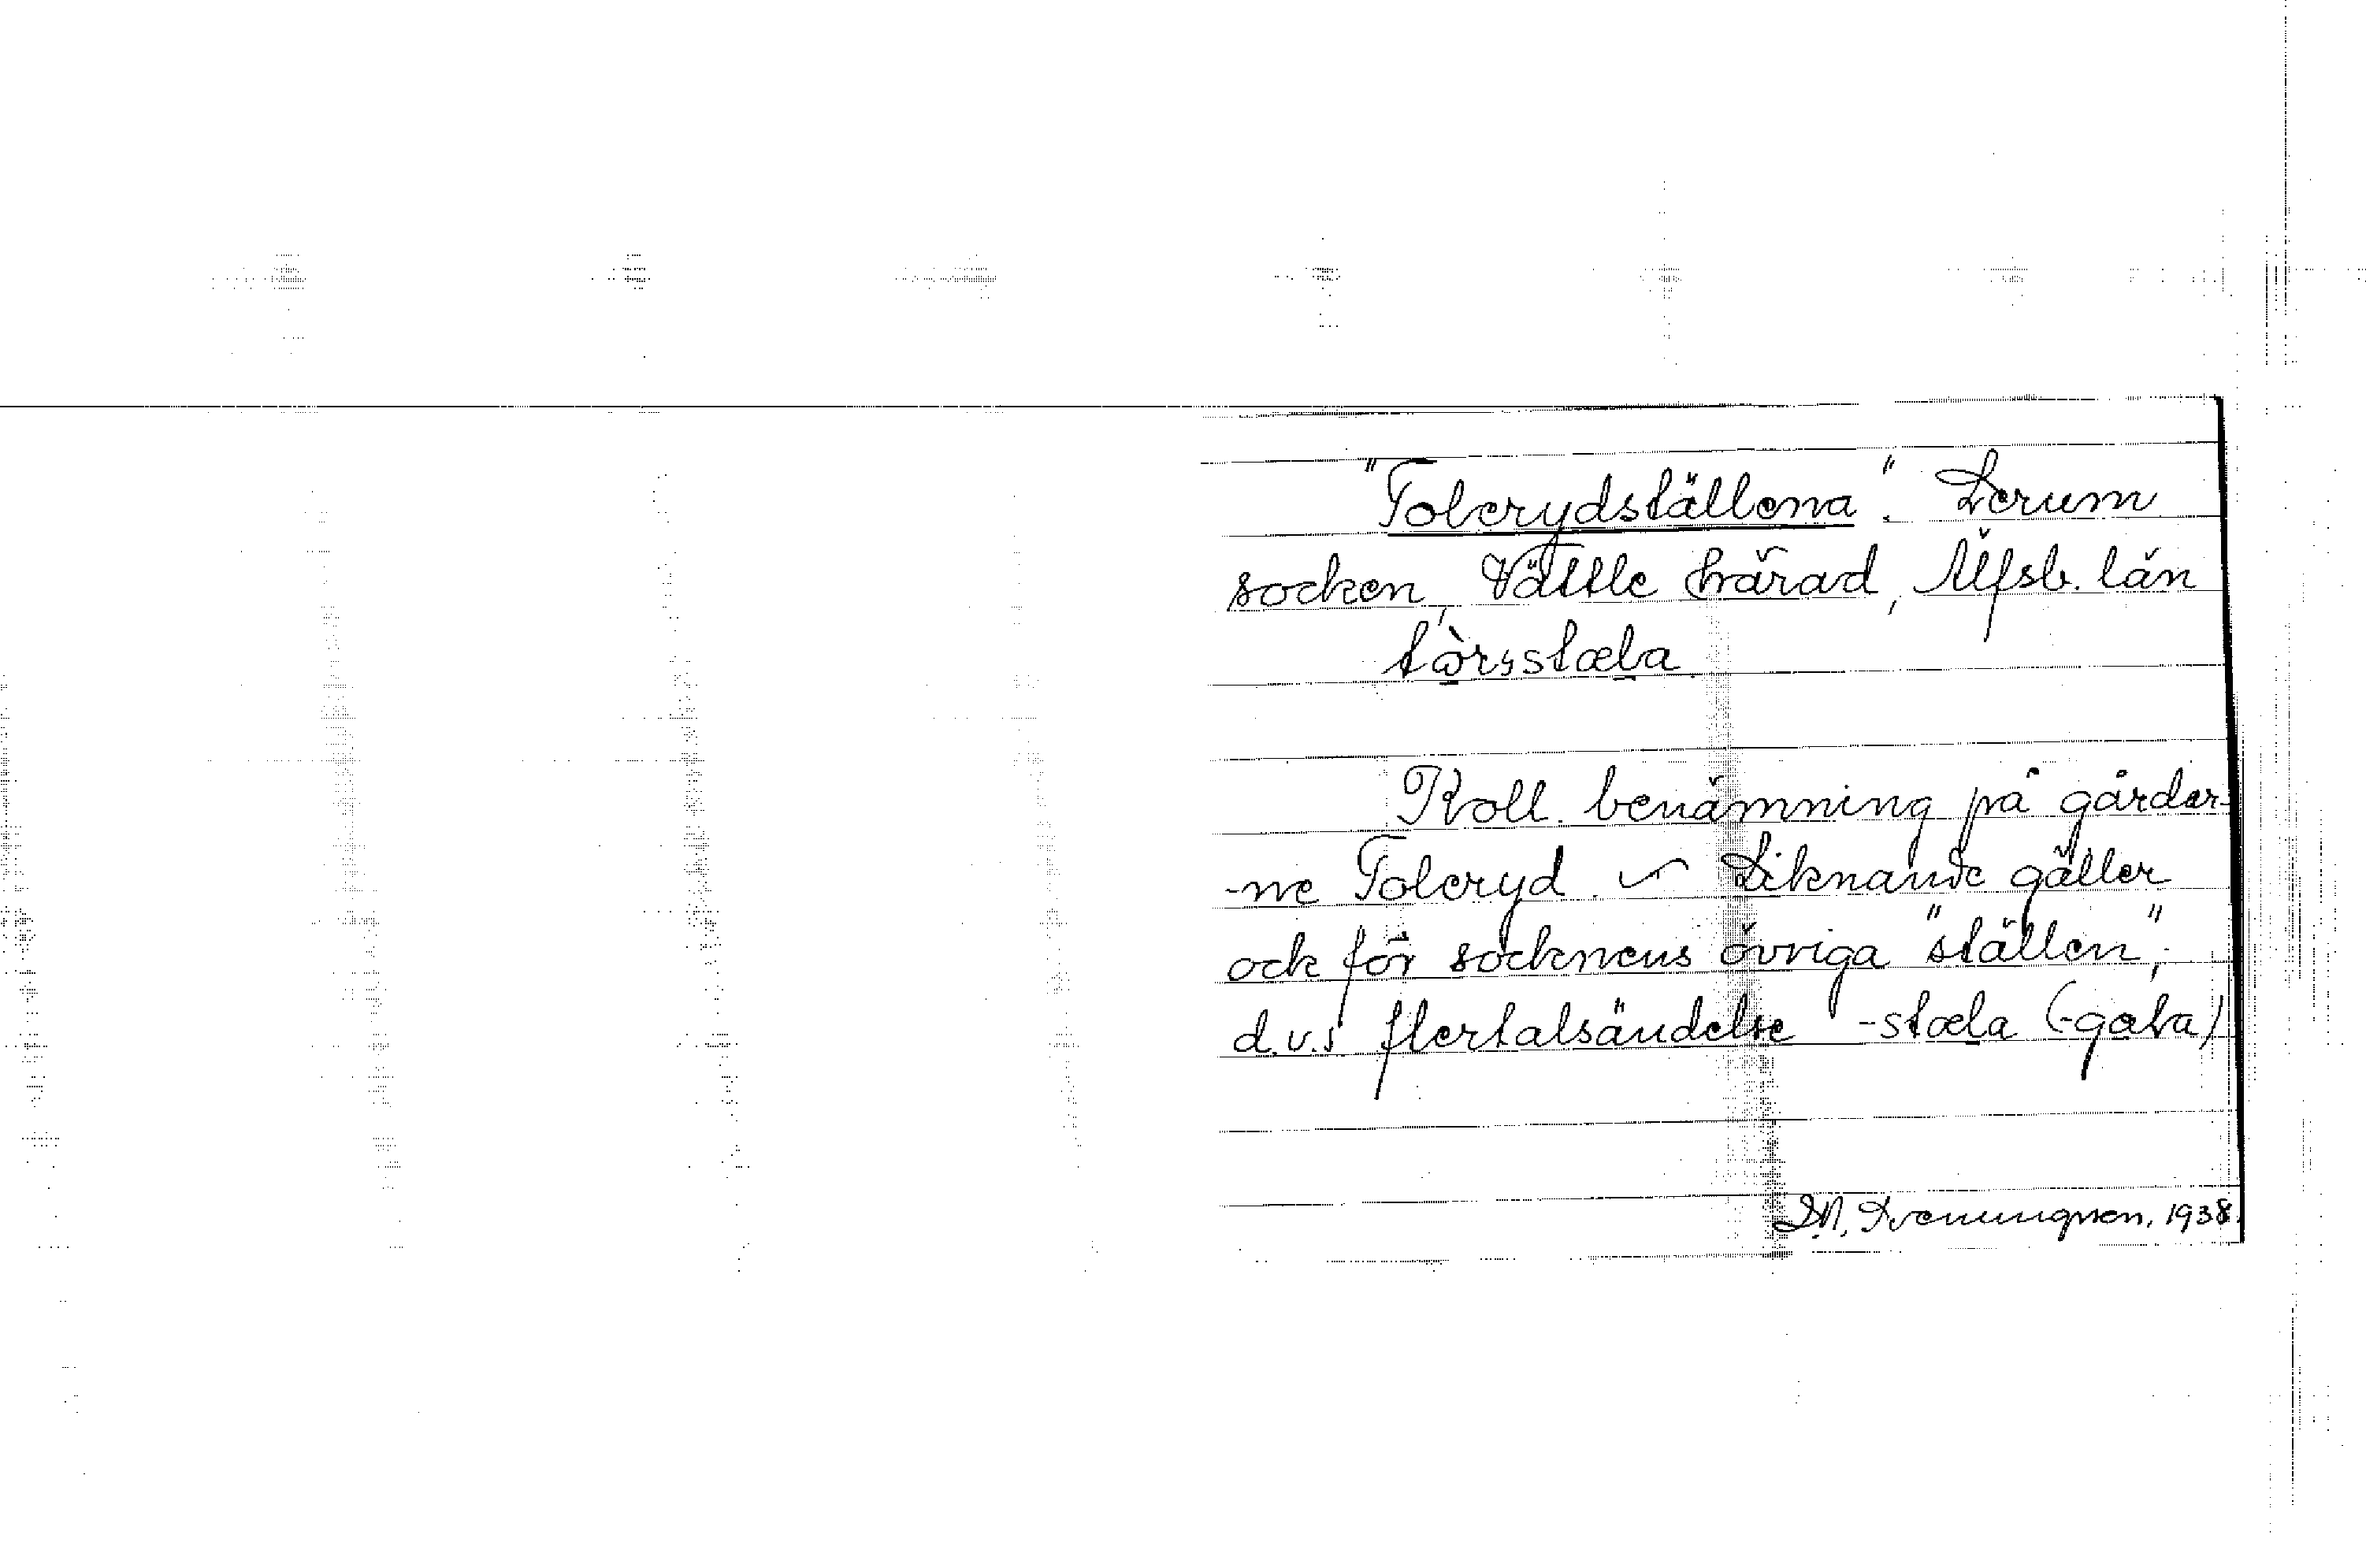 "Tolerydställena". Lerum
socken, Vättle härad, Älfsb. län
tòrsstæla
Koll. benämning på gårdar-
-ne Toleryd. ~ Liknande gäller
ock för socknens övriga "ställen",
d.v.s flertalsändelse -stæla (-gala)
1938.